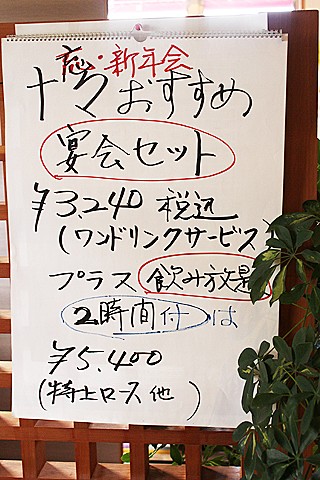 忘・新年会
十々おすすめ
宴会セット
¥3,240 税込
(ワンドリンクサービス)
プラス 飲み放題
2時間付は
¥5,400
(特上ロース他)